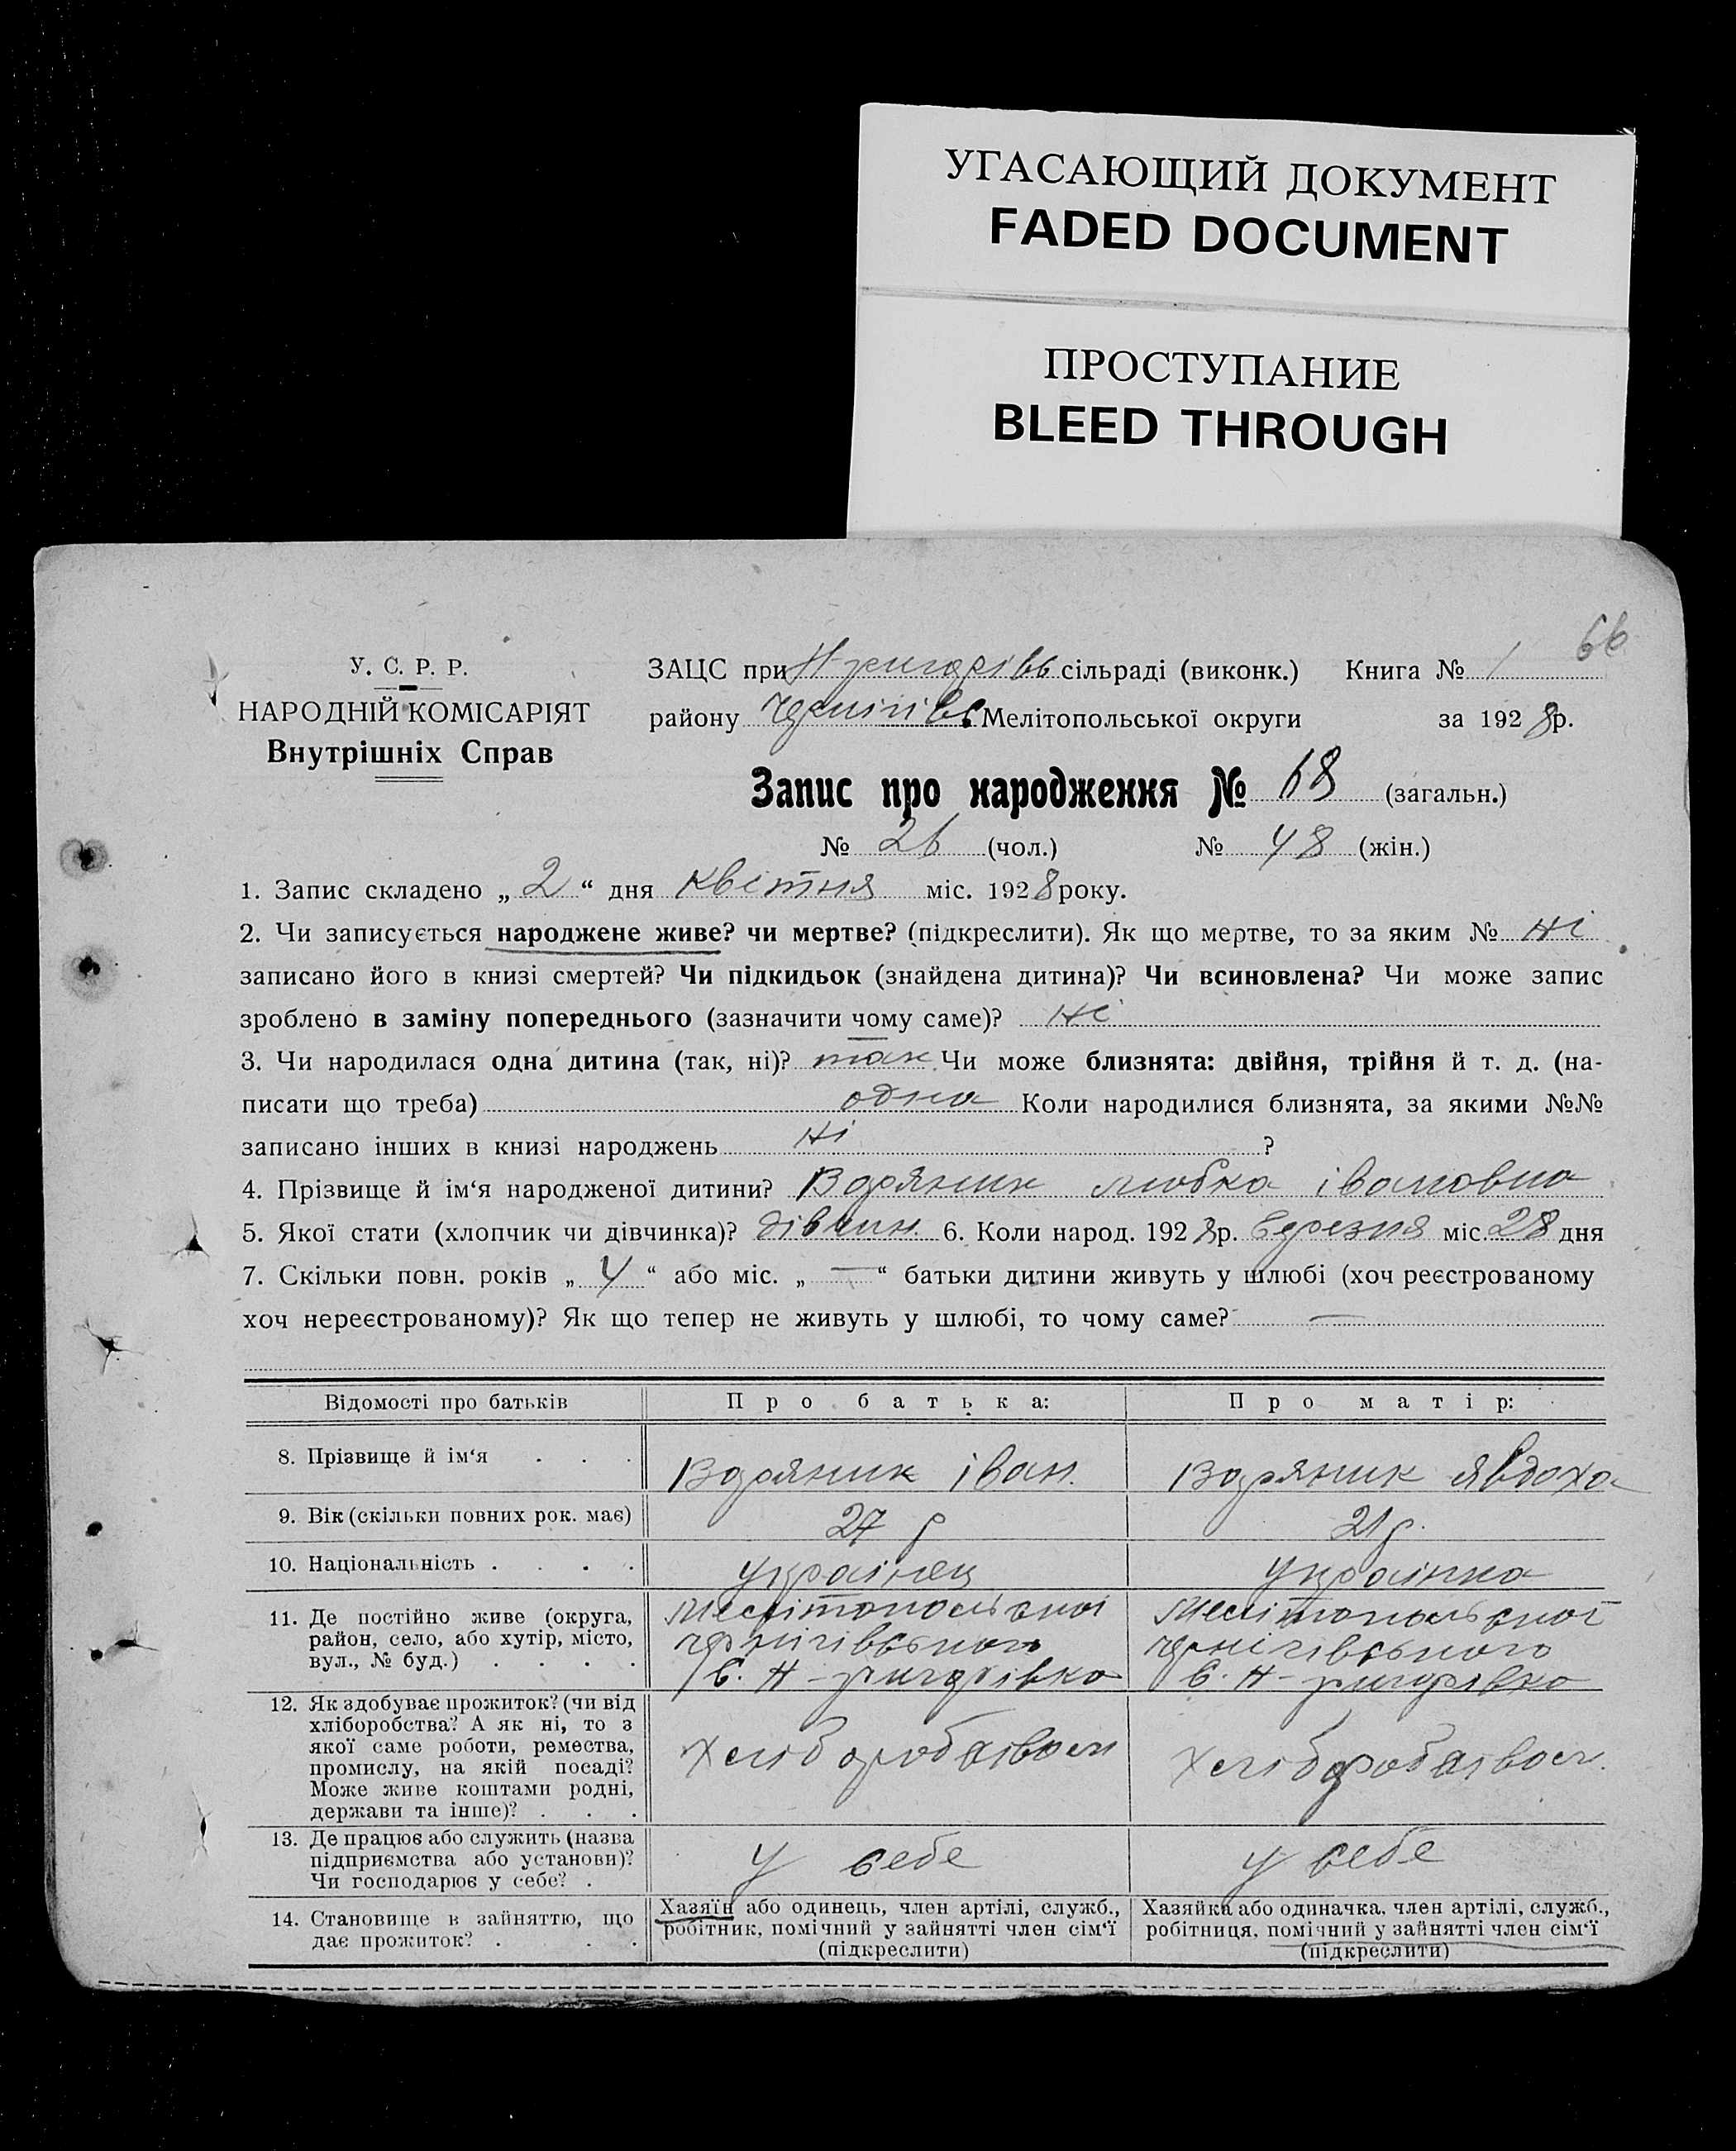 УГАСАЮЩИЙ ДОКУМЕНТ
FADED DOCUMENT
ПРОСТУПАНИЕ
BLEED THROUGH
66
У. С. Р. Р.
НАРОДНІЙ КОМІСАРІЯТ
Внутрішніх Справ
ЗАЦС при сільраді (виконк.) Книга № 1
району Чернігівс Мелітопольської округи за 1928р.
Запис про народження № 68 (загальн.)
№ 26 (чол.) № 48 (жін.)
1. Запис складено „ 2 “ дня Квітня міс. 1928 року.
2. Чи записується народжене живе? чи мертве? (підкреслити). Як що мертве, то за яким № Ні
записано його в книзі смертей? Чи підкидьок (знайдена дитина)? Чи всиновлена? Чи може запис
зроблено в заміну попереднього (зазначити чому саме)? Ні
3. Чи народилася одна дитина (так, ні)? так Чи може близнята: двійня, трійня й т. д. (на-
писати що треба) одна Коли народилися близнята, за якими №№
записано інших в книзі народжень Ні ?
4. Прізвище й ім‘я народженої дитини? любка івановна
5. Якої стати (хлопчик чи дівчинка)? дівчин. 6. Коли народ. 1928р. Березня міс. 28 дня
7. Скільки повн. років „ 4 “ або міс. „ — “ батьки дитини живуть у шлюбі (хоч реєстрованому
хоч нереєстрованому)? Як що тепер не живуть у шлюбі, то чому саме? —
Відомості про батьків Про батька: Про матір:
8. Прізвище й ім‘я . . . іван. явдоха
9. Вік (скільки повних рок. має) 27 р 21 р.
10. Національність . . . . українец українка
11. Де постійно живе (округа, Мелітопольської Мелітопольської
район, село, або хутір, місто, чернігівського чернігівського
вул., № буд.) . . . . с. Н- с. Н-
12. Як здобуває прожиток? (чи від
хліборобства? А як ні, то з
якої саме роботи, ремества,
промислу, на якій посаді?
Може живе коштами родні,
держави та інше)? . . .
13. Де працює або служить (назва
підприємства або установи)? у себе у себе
Чи господарює у себе? .
14. Становище в зайняттю, що
дає прожиток? . . .
Хазяїн або одинець, член артілі, служб.,
робітник, помічний у зайнятті член сім‘ї
(підкреслити)
Хазяйка або одиначка, член артілі, служб.,
робітниця, помічний у зайнятті член сім‘ї
(підкреслити)